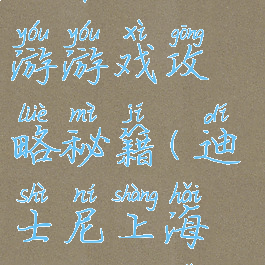 yóu yóu xì gōng
游游戏攻
lüè mì jí dí
略秘籍(迪
shì ní shàng hǎi
士尼上海